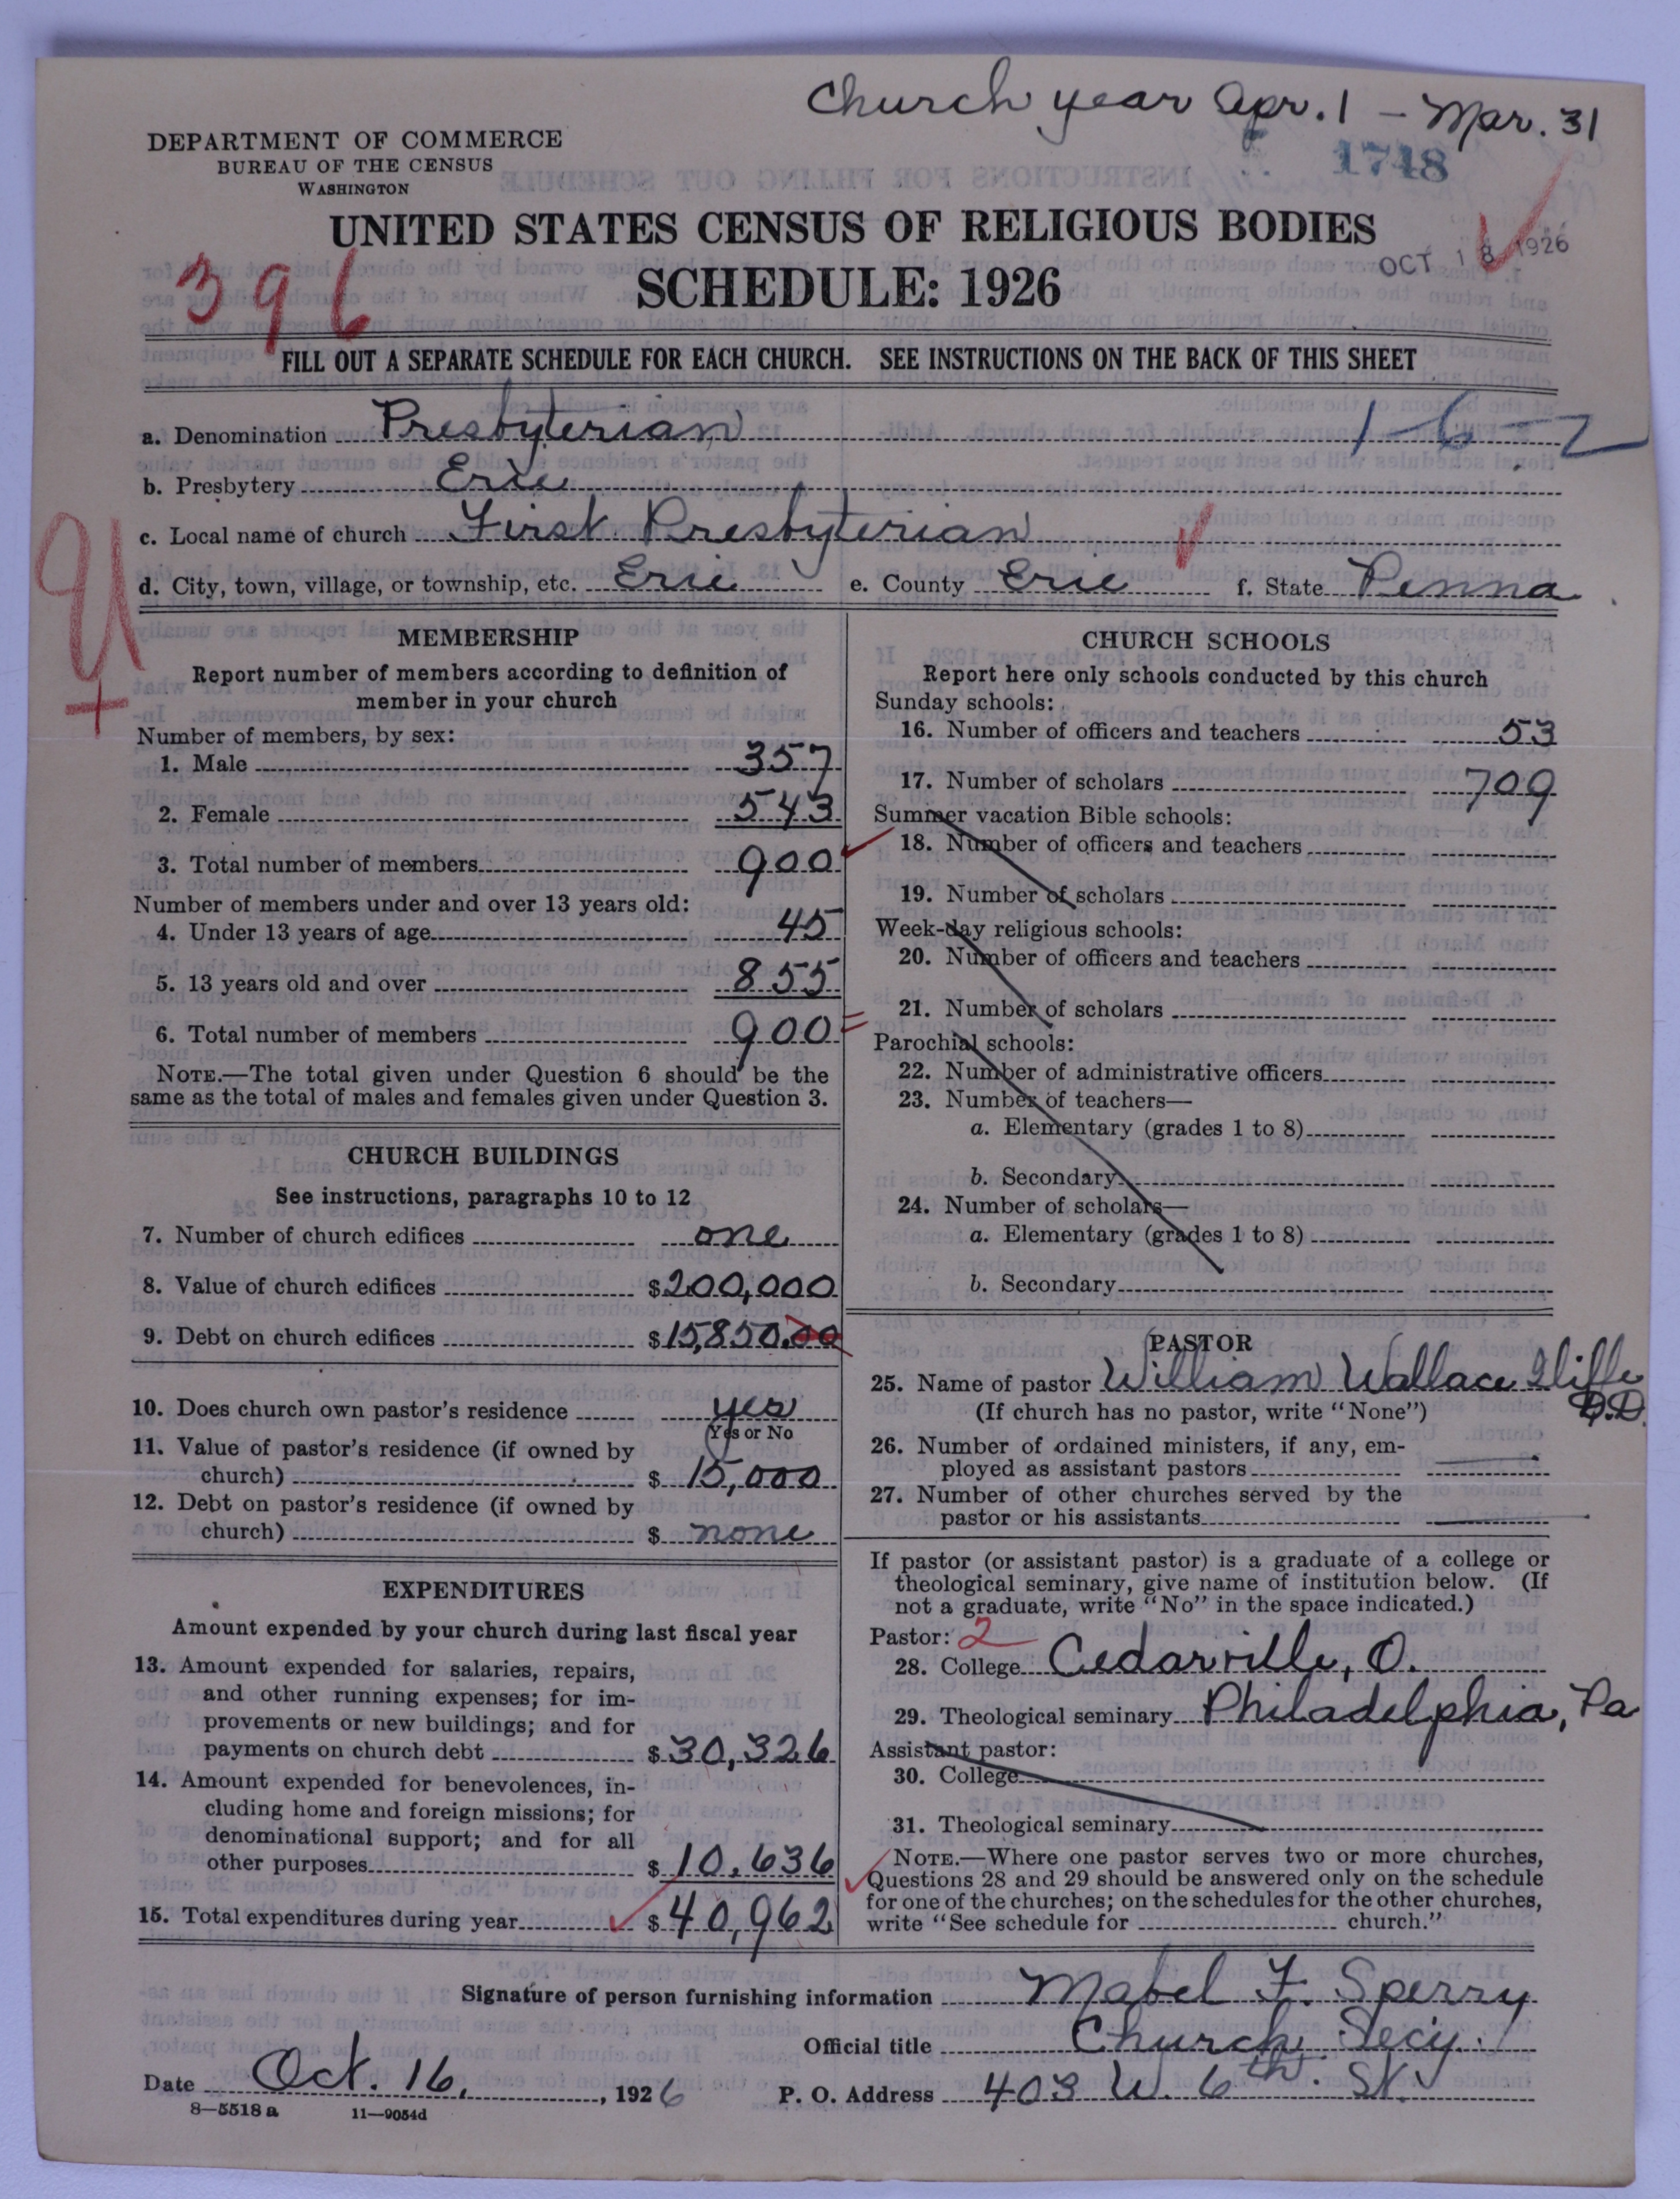 Church year Apr. 1 - Mar. 31
1748
DEPARTMENT OF COMMERCE
BUREAU OF THE CENSUS
WASHINGTON
UNITED STATES CENSUS OF RELIGIOUS BODIES
OCT 18 1926
SCHEDULE: 1926
396
FILL OUT A SEPARATE SCHEDULE FOR EACH CHURCH. SEE INSTRUCTIONS ON THE BACK OF THIS SHEET
a. Denomination Presbyterian 1-6-2
b. Presbytery Erie
c. Local name of church First Presbyterian
d. City, town, village, or township, etc. Erie e. County Erie f. State Penna
MEMBERSHIP
Report number of members according to definition of
member in your church
Number of members, by sex:
1. Male 357
2. Female 543
3. Total number of members 900
Number of members under and over 13 years old:
4. Under 13 years of age 45
5. 13 years old and over 855
6. Total number of members 900
NOTE.—The total given under Question 6 should be the
same as the total of males and females given under Question 3.
CHURCH BUILDINGS
See instructions, paragraphs 10 to 12
7. Number of church edifices one
8. Value of church edifices $200,000
9. Debt on church edifices $15,850.00
10. Does church own pastor's residence yes
Yes or No
11. Value of pastor's residence (if owned by
church) $ 15,000
12. Debt on pastor's residence (if owned by
church) $ none
EXPENDITURES
Amount expended by your church during last fiscal year
13. Amount expended for salaries, repairs,
and other running expenses; for im-
provements or new buildings; and for
payments on church debt $30,326
14. Amount expended for benevolences, in-
cluding home and foreign missions; for
denominational support; and for all
other purposes $10,636
15. Total expenditures during year $40,962
CHURCH SCHOOLS
Report here only schools conducted by this church
Sunday schools:
16. Number of officers and teachers 53
17. Number of scholars 709
Summer vacation Bible schools:
18. Number of officers and teachers
19. Number of scholars
Week-day religious schools:
20. Number of officers and teachers
21. Number of scholars
Parochial schools:
22. Number of administrative officers
23. Number of teachers—
a. Elementary (grades 1 to 8)
b. Secondary
24. Number of scholars—
a. Elementary (grades 1 to 8)
b. Secondary
PASTOR
25. Name of pastor William Wallace Iliffe
D.D.
(If church has no pastor, write "None")
26. Number of ordained ministers, if any, em-
ployed as assistant pastors
27. Number of other churches served by the
pastor or his assistants
If pastor (or assistant pastor) is a graduate of a college or
theological seminary, give name of institution below. (If
not a graduate, write "No" in the space indicated.)
Pastor: 2
28. College Cedarville, O.
29. Theological seminary Philadelphia, Pa
Assistant pastor:
30. College
31. Theological seminary
NOTE.—Where one pastor serves two or more churches,
Questions 28 and 29 should be answered only on the schedule
for one of the churches; on the schedules for the other churches,
write "See schedule for church."
Signature of person furnishing information Mabel F. Sperry
Official title Church Secy.
Date Oct. 16, , 1926 P. O. Address 403 W. 6th. St.
8—5518 a 11—9054d